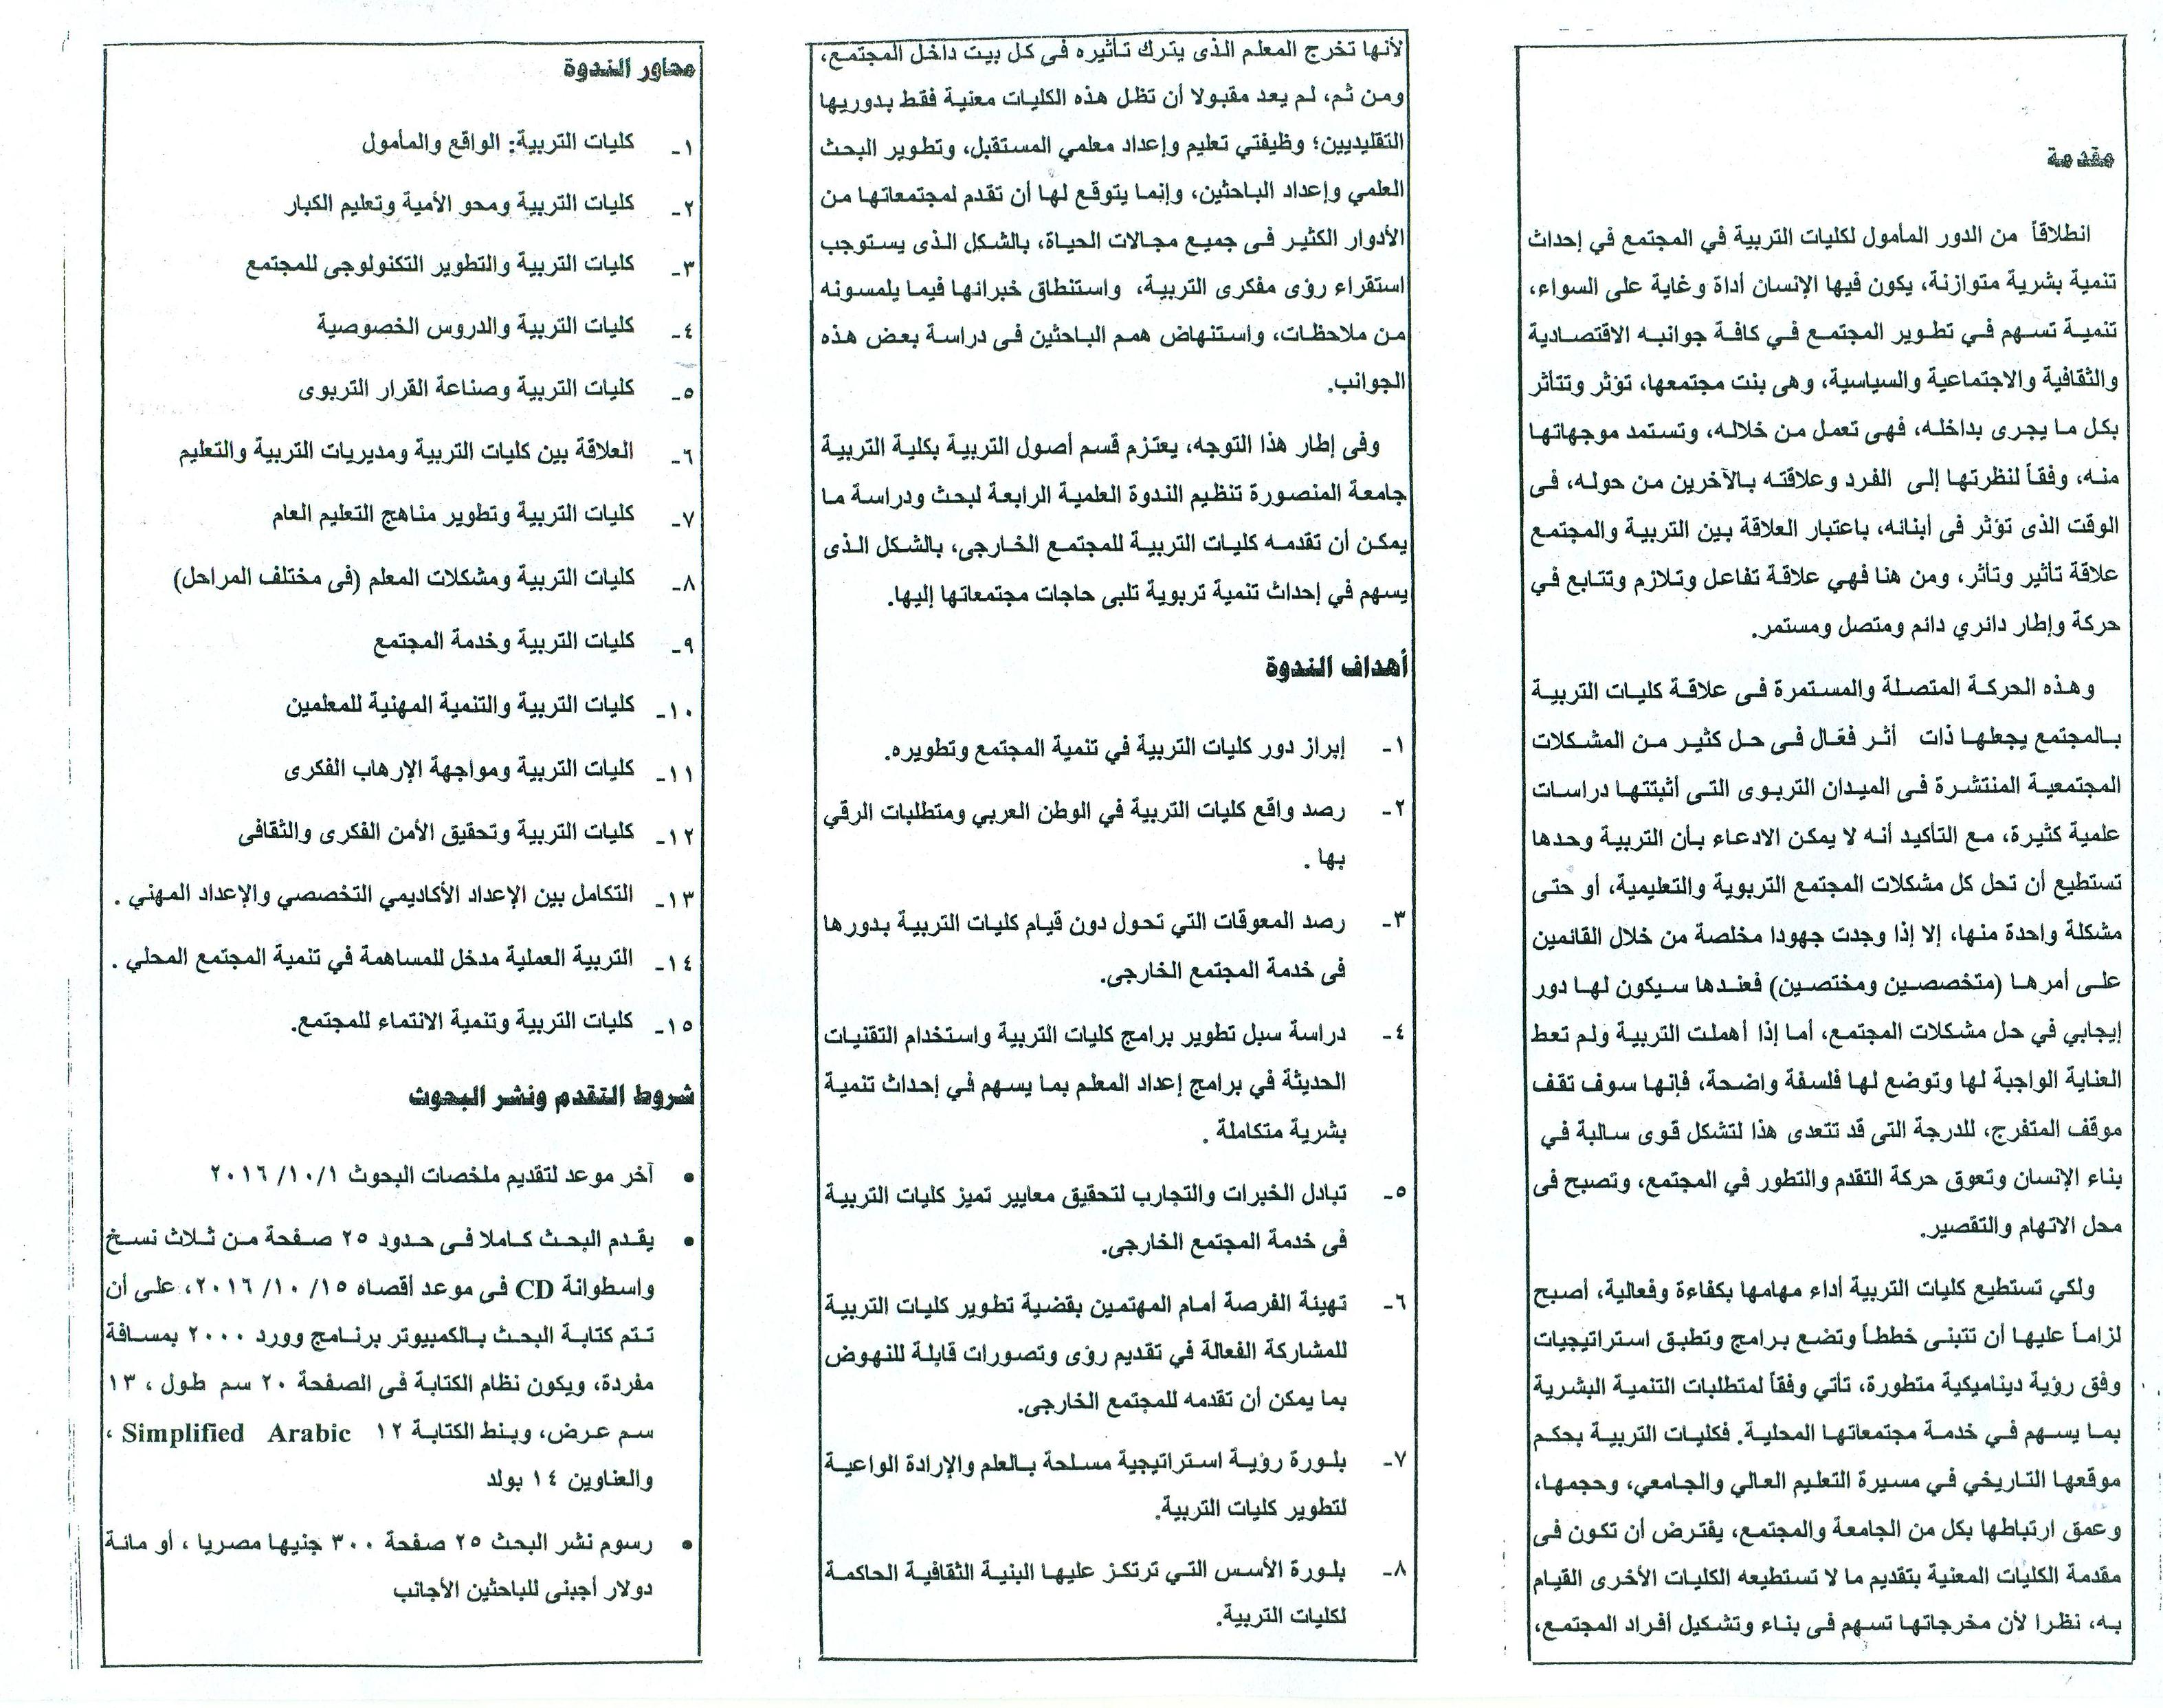 مقدمة
انطلاقاً من الدور المأمول لكليات التربية في المجتمع في إحداث
تنمية بشرية متوازنة، يكون فيها الإنسان أداة وغاية على السواء،
تنمية تسهم في تطوير المجتمع في كافة جوانبه الاقتصادية
والثقافية والاجتماعية والسياسية، وهى بنت مجتمعها، تؤثر وتتأثر
بكل ما يجرى بداخله، فهى تعمل من خلاله، وتستمد موجهاتها
منه، وفقاً لنظرتها إلى الفرد وعلاقته بالآخرين من حوله، فى
الوقت الذى تؤثر فى أبنائه، باعتبار العلاقة بين التربية والمجتمع
علاقة تأثير وتأثر، ومن هنا فهي علاقة تفاعل وتلازم وتتابع في
حركة وإطار دائري دائم ومتصل ومستمر.
وهذه الحركة المتصلة والمستمرة فى علاقة كليات التربية
بالمجتمع يجعلها ذات أثر فعّال فى حل كثير من المشكلات
المجتمعية المنتشرة فى الميدان التربوى التى أثبتتها دراسات
علمية كثيرة، مع التأكيد أنه لا يمكن الادعاء بأن التربية وحدها
تستطيع أن تحل كل مشكلات المجتمع التربوية والتعليمية، أو حتى
مشكلة واحدة منها، إلا إذا وجدت جهودا مخلصة من خلال القائمين
على أمرها (متخصصين ومختصين) فعندها سيكون لها دور
إيجابي في حل مشكلات المجتمع، أما إذا أهملت التربية ولم تعط
العناية الواجبة لها وتوضع لها فلسفة واضحة، فإنها سوف تقف
موقف المتفرج، للدرجة التى قد تتعدى هذا لتشكل قوى سالبة في
بناء الإنسان وتعوق حركة التقدم والتطور في المجتمع، وتصبح فى
محل الاتهام والتقصير.
ولكي تستطيع كليات التربية أداء مهامها بكفاءة وفعالية، أصبح
لزاماً عليها أن تتبنى خططاً وتضع برامج وتطبق استراتيجيات
وفق رؤية ديناميكية متطورة، تأتي وفقاً لمتطلبات التنمية البشرية
بما يسهم في خدمة مجتمعاتها المحلية. فكليات التربية بحكم
موقعها التاريخي في مسيرة التعليم العالي والجامعي، وحجمها،
وعمق ارتباطها بكل من الجامعة والمجتمع، يفترض أن تكون فى
مقدمة الكليات المعنية بتقديم ما لا تستطيعه الكليات الأخرى القيام
به، نظرا لأن مخرجاتها تسهم فى بناء وتشكيل أفراد المجتمع،
لأنها تخرج المعلم الذى يترك تأثيره فى كل بيت داخل المجتمع،
ومن ثم، لم يعد مقبولا أن تظل هذه الكليات معنية فقط بدوريها
التقليديين؛ وظيفتي تعليم وإعداد معلمي المستقبل، وتطوير البحث
العلمي وإعداد الباحثين، وإنما يتوقع لها أن تقدم لمجتمعاتها من
الأدوار الكثير فى جميع مجالات الحياة، بالشكل الذى يستوجب
استقراء رؤى مفكرى التربية، واستنطاق خبراتها فيما يلمسونه
من ملاحظات، واستنهاض همم الباحثين فى دراسة بعض هذه
الجوانب.
وفى إطار هذا التوجه، يعتزم قسم أصول التربية بكلية التربية
جامعة المنصورة تنظيم الندوة العلمية الرابعة لبحث ودراسة ما
يمكن أن تقدمه كليات التربية للمجتمع الخارجى، بالشكل الذى
يسهم في إحداث تنمية تربوية تلبى حاجات مجتمعاتها إليها.
أهداف الندوة
١- إبراز دور كليات التربية في تنمية المجتمع وتطويره.
٢- رصد واقع كليات التربية في الوطن العربي ومتطلبات الرقي
بها .
٣- رصد المعوقات التي تحول دون قيام كليات التربية بدورها
فى خدمة المجتمع الخارجى.
٤- دراسة سبل تطوير برامج كليات التربية واستخدام التقنيات
الحديثة في برامج إعداد المعلم بما يسهم في إحداث تنمية
بشرية متكاملة .
٥- تبادل الخبرات والتجارب لتحقيق معايير تميز كليات التربية
فى خدمة المجتمع الخارجى.
٦- تهيئة الفرصة أمام المهتمين بقضية تطوير كليات التربية
للمشاركة الفعالة في تقديم رؤى وتصورات قابلة للنهوض
بما يمكن أن تقدمه للمجتمع الخارجى.
٧- بلورة رؤية استراتيجية مسلحة بالعلم والإرادة الواعية
لتطوير كليات التربية.
٨- بلورة الأسس التي ترتكز عليها البنية الثقافية الحاكمة
لكليات التربية.
محاور الندوة
١- كليات التربية: الواقع والمأمول
٢- كليات التربية ومحو الأمية وتعليم الكبار
٣- كليات التربية والتطوير التكنولوجى للمجتمع
٤- كليات التربية والدروس الخصوصية
٥- كليات التربية وصناعة القرار التربوى
٦- العلاقة بين كليات التربية ومديريات التربية والتعليم
٧- كليات التربية وتطوير مناهج التعليم العام
٨- كليات التربية ومشكلات المعلم (فى مختلف المراحل)
٩- كليات التربية وخدمة المجتمع
١٠- كليات التربية والتنمية المهنية للمعلمين
١١- كليات التربية ومواجهة الإرهاب الفكرى
١٢- كليات التربية وتحقيق الأمن الفكرى والثقافى
١٣- التكامل بين الإعداد الأكاديمي التخصصي والإعداد المهني .
١٤- التربية العملية مدخل للمساهمة في تنمية المجتمع المحلي .
١٥- كليات التربية وتنمية الانتماء للمجتمع.
شروط التقدم ونشر البحوث
• آخر موعد لتقديم ملخصات البحوث ١/ ١٠/ ٢٠١٦
• يقدم البحث كاملا فى حدود ٢٥ صفحة من ثلاث نسخ
واسطوانة CD فى موعد أقصاه ١٥/ ١٠/ ٢٠١٦، على أن
تتم كتابة البحث بالكمبيوتر برنامج وورد ٢٠٠٠ بمسافة
مفردة، ويكون نظام الكتابة فى الصفحة ٢٠ سم طول ، ١٣
سم عرض، وبنط الكتابة ١٢ Simplified Arabic ،
والعناوين ١٤ بولد
• رسوم نشر البحث ٢٥ صفحة ٣٠٠ جنيها مصريا ، أو مائة
دولار أجبنى للباحثين الأجانب